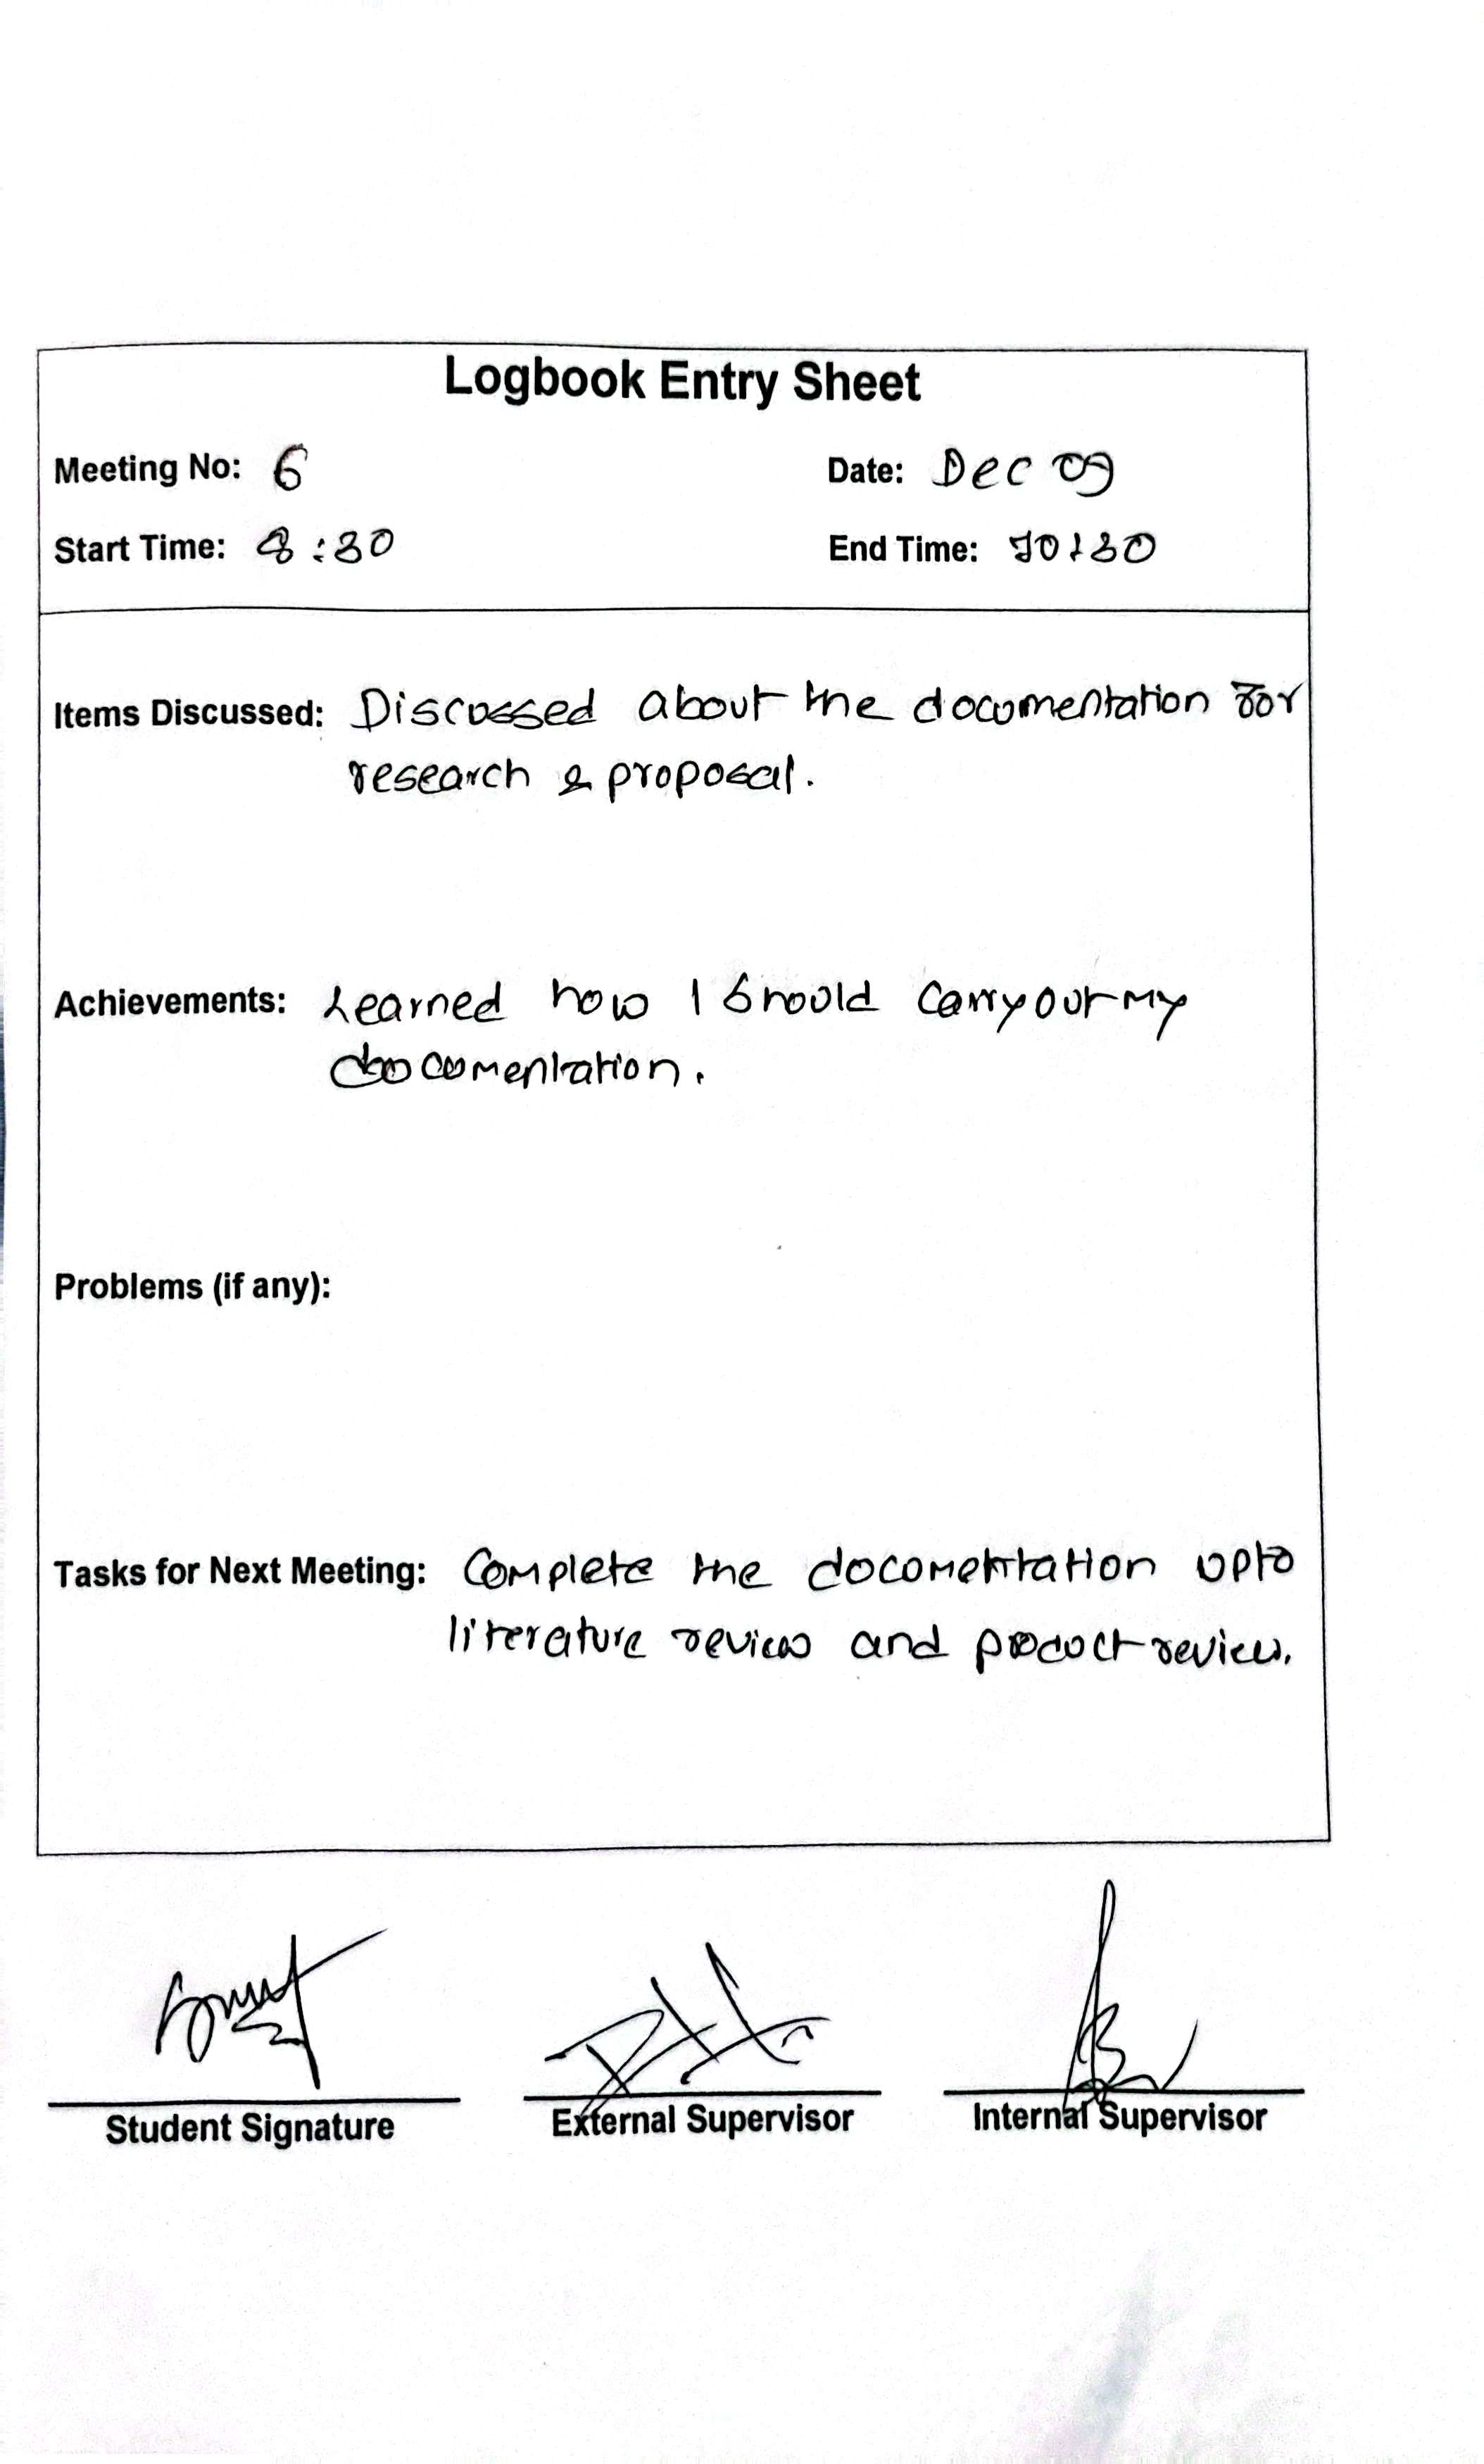 Logbook Entry Sheet
Meeting No: 6 Date: Dec 09
Start Time: 8:30 End Time: 10:30
Items Discussed: Discussed about the documentation for
research & proposal.
Achievements: Learned how I should carry out my
documentation.
Problems (if any):
Tasks for Next Meeting: Complete the documentation upto
literature review and product review.
Student Signature External Supervisor Internal Supervisor